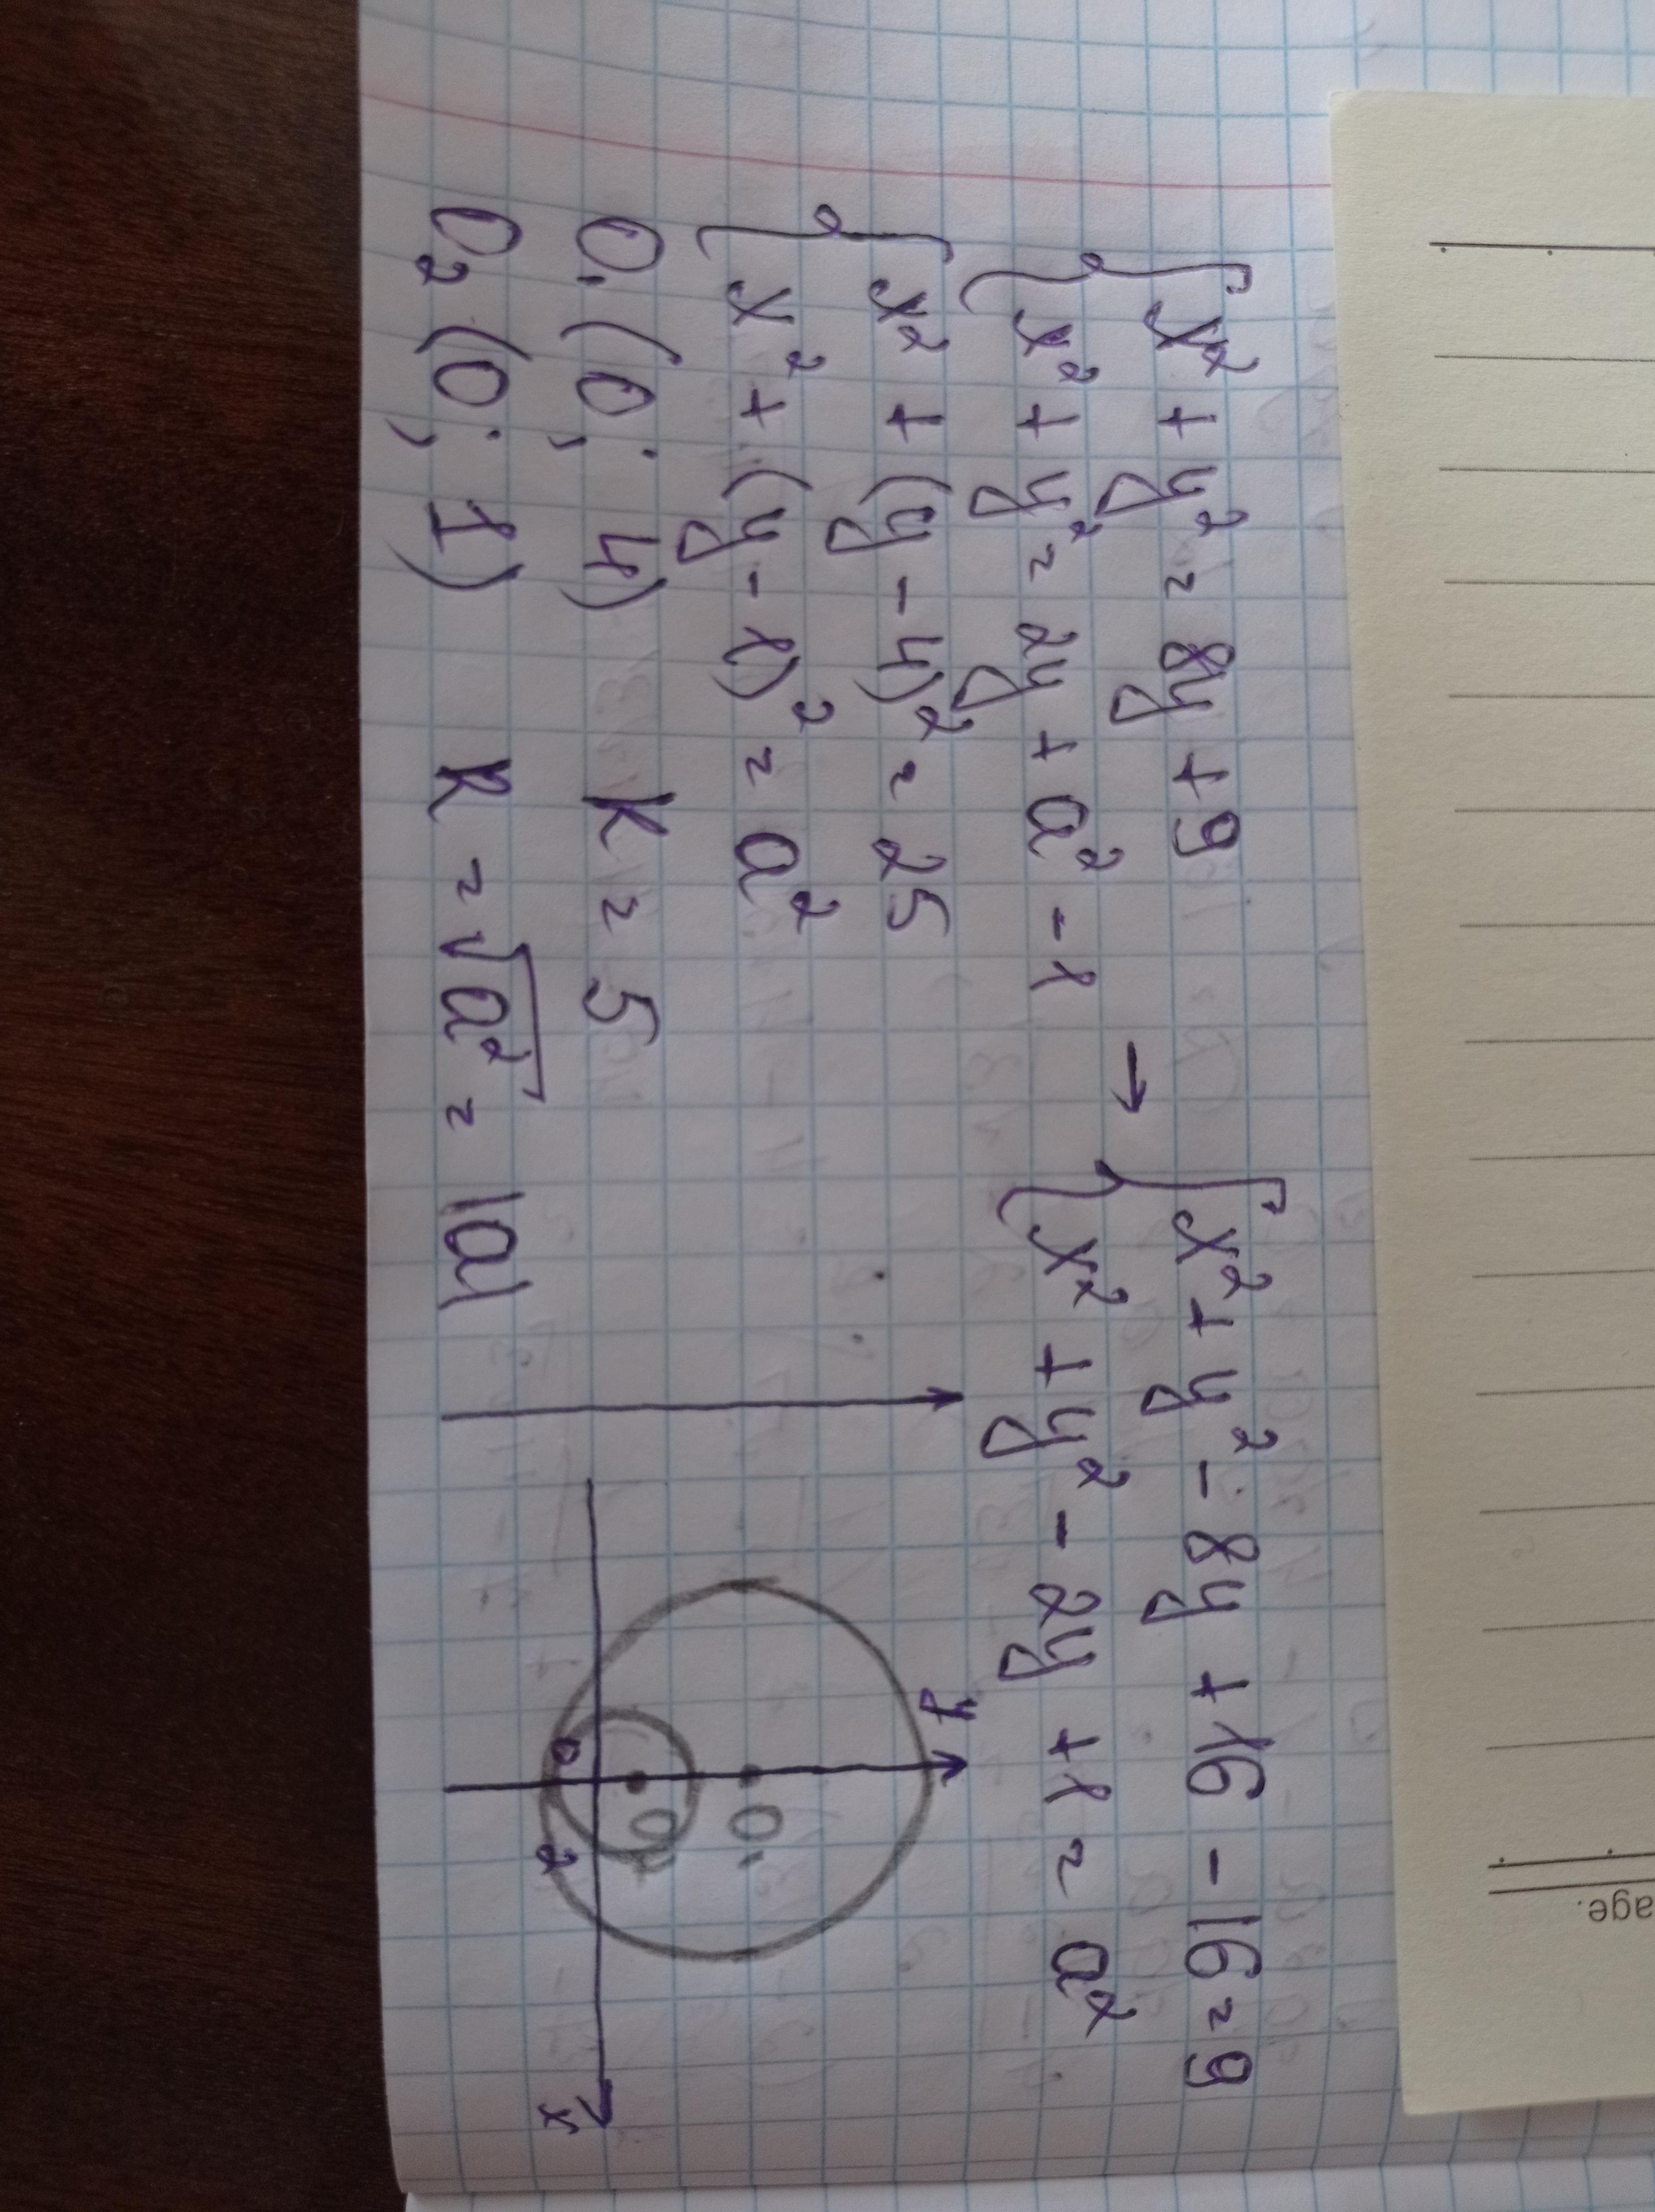 { x² + y² = 8y + 9
{ x² + y² = 2y + a² - 1
→
{ x² + y² - 8y + 16 - 16 = 9
{ x² + y² - 2y + 1 = a²
{ x² + (y - 4)² = 25
{ x² + (y - 1)² = a²
O₁ (0; 4) R = 5
O₂ (0; 1) R = √a² = |a|
y
O₁
O₂
0
2
x
age.